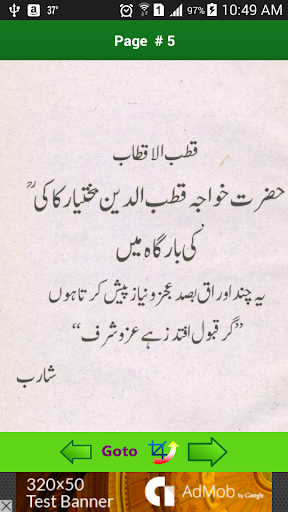 37°
97%
10:49 AM
Page # 5
قطب الاقطاب
حضرت خواجہ قطب الدین مختیار کاکیؒ
کی بارگاہ میں
یہ چند اوراق بصد عجز و نیاز پیش کرتا ہوں
”گر قبول افتد زہے عز و شرف“
شارب
Goto
320x50
Test Banner
AdMob by Google